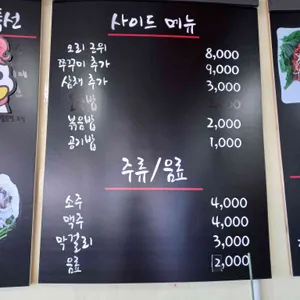 사이드 메뉴
오리 근위 8,000
쭈꾸미 추가 9,000
삼채 추가 3,000
볶음밥 2,000
공기밥 1,000
주류/음료
소주 4,000
맥주 4,000
막걸리 3,000
음료 2,000